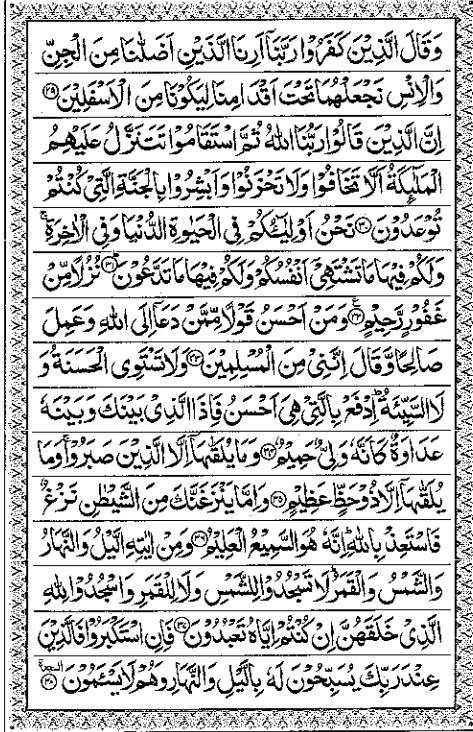 وَقَالَ الَّذِيْنَ كَفَرُوْا رَبَّنَاۤ اَرِنَا الَّذَيْنِ اَضَلّٰنَا مِنَ الْجِنِّ
وَالْاِنْسِ نَجْعَلْهُمَا تَحْتَ اَقْدَامِنَا لِيَكُوْنَا مِنَ الْاَسْفَلِيْنَ ۝۲۹
اِنَّ الَّذِيْنَ قَالُوْا رَبُّنَا اللّٰهُ ثُمَّ اسْتَقَامُوْا تَتَنَزَّلُ عَلَيْهِمُ
الْمَلٰٓئِكَةُ اَلَّا تَخَافُوْا وَلَا تَحْزَنُوْا وَاَبْشِرُوْا بِالْجَنَّةِ الَّتِيْ كُنْتُمْ
تُوْعَدُوْنَ ۝۳۰ نَحْنُ اَوْلِيٰٓـؤُكُمْ فِي الْحَيٰوةِ الدُّنْيَا وَفِي الْاٰخِرَةِ ۚ
وَلَكُمْ فِيْهَا مَا تَشْتَهِيْۤ اَنْفُسُكُمْ وَلَكُمْ فِيْهَا مَا تَدَّعُوْنَ ؕ۝۳۱ نُزُلًا مِّنْ
غَفُوْرٍ رَّحِيْمٍ ۝۳۲ ع وَمَنْ اَحْسَنُ قَوْلًا مِّمَّنْ دَعَاۤ اِلَى اللّٰهِ وَعَمِلَ
صَالِحًا وَّقَالَ اِنَّنِيْ مِنَ الْمُسْلِمِيْنَ ۝۳۳ وَلَا تَسْتَوِي الْحَسَنَةُ وَ
لَا السَّيِّئَةُ ؕ اِدْفَعْ بِالَّتِيْ هِيَ اَحْسَنُ فَاِذَا الَّذِيْ بَيْنَكَ وَبَيْنَهٗ
عَدَاوَةٌ كَاَنَّهٗ وَلِيٌّ حَمِيْمٌ ۝۳۴ وَمَا يُلَقّٰىهَاۤ اِلَّا الَّذِيْنَ صَبَرُوْا ۚ وَمَا
يُلَقّٰىهَاۤ اِلَّا ذُوْ حَظٍّ عَظِيْمٍ ۝۳۵ وَاِمَّا يَنْزَغَنَّكَ مِنَ الشَّيْطٰنِ نَزْغٌ
فَاسْتَعِذْ بِاللّٰهِ ؕ اِنَّهٗ هُوَ السَّمِيْعُ الْعَلِيْمُ ۝۳۶ وَمِنْ اٰيٰتِهِ الَّيْلُ وَالنَّهَارُ
وَالشَّمْسُ وَالْقَمَرُ ؕ لَا تَسْجُدُوْا لِلشَّمْسِ وَلَا لِلْقَمَرِ وَاسْجُدُوْا لِلّٰهِ
الَّذِيْ خَلَقَهُنَّ اِنْ كُنْتُمْ اِيَّاهُ تَعْبُدُوْنَ ۝۳۷ فَاِنِ اسْتَكْبَرُوْا فَالَّذِيْنَ
عِنْدَ رَبِّكَ يُسَبِّحُوْنَ لَهٗ بِالَّيْلِ وَالنَّهَارِ وَهُمْ لَا يَسْـَٔمُوْنَ ۝۳۸ السجدة